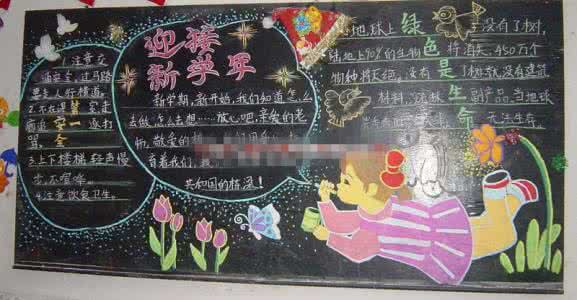 迎接
新学年
1.注意交
通安全,过马路
要走人行横道。
2.不在教室走
廊追 逐打
骂。
安
全
3.上下楼梯轻声慢
步,不喧哗。
4.注意饮食卫生。
新学期,新开始,我们知道怎么
去做,怎么去想……放心吧,亲爱的老
师,敬爱的
育着我们,我
共和国的栋梁!
地球上 没有了树,
陆地上90%的生物 将消失,450万个
物种将灭绝。没有了树就没有建筑
材料、森林 副产品,当地球
无法生存。
绿
色
是
生
命